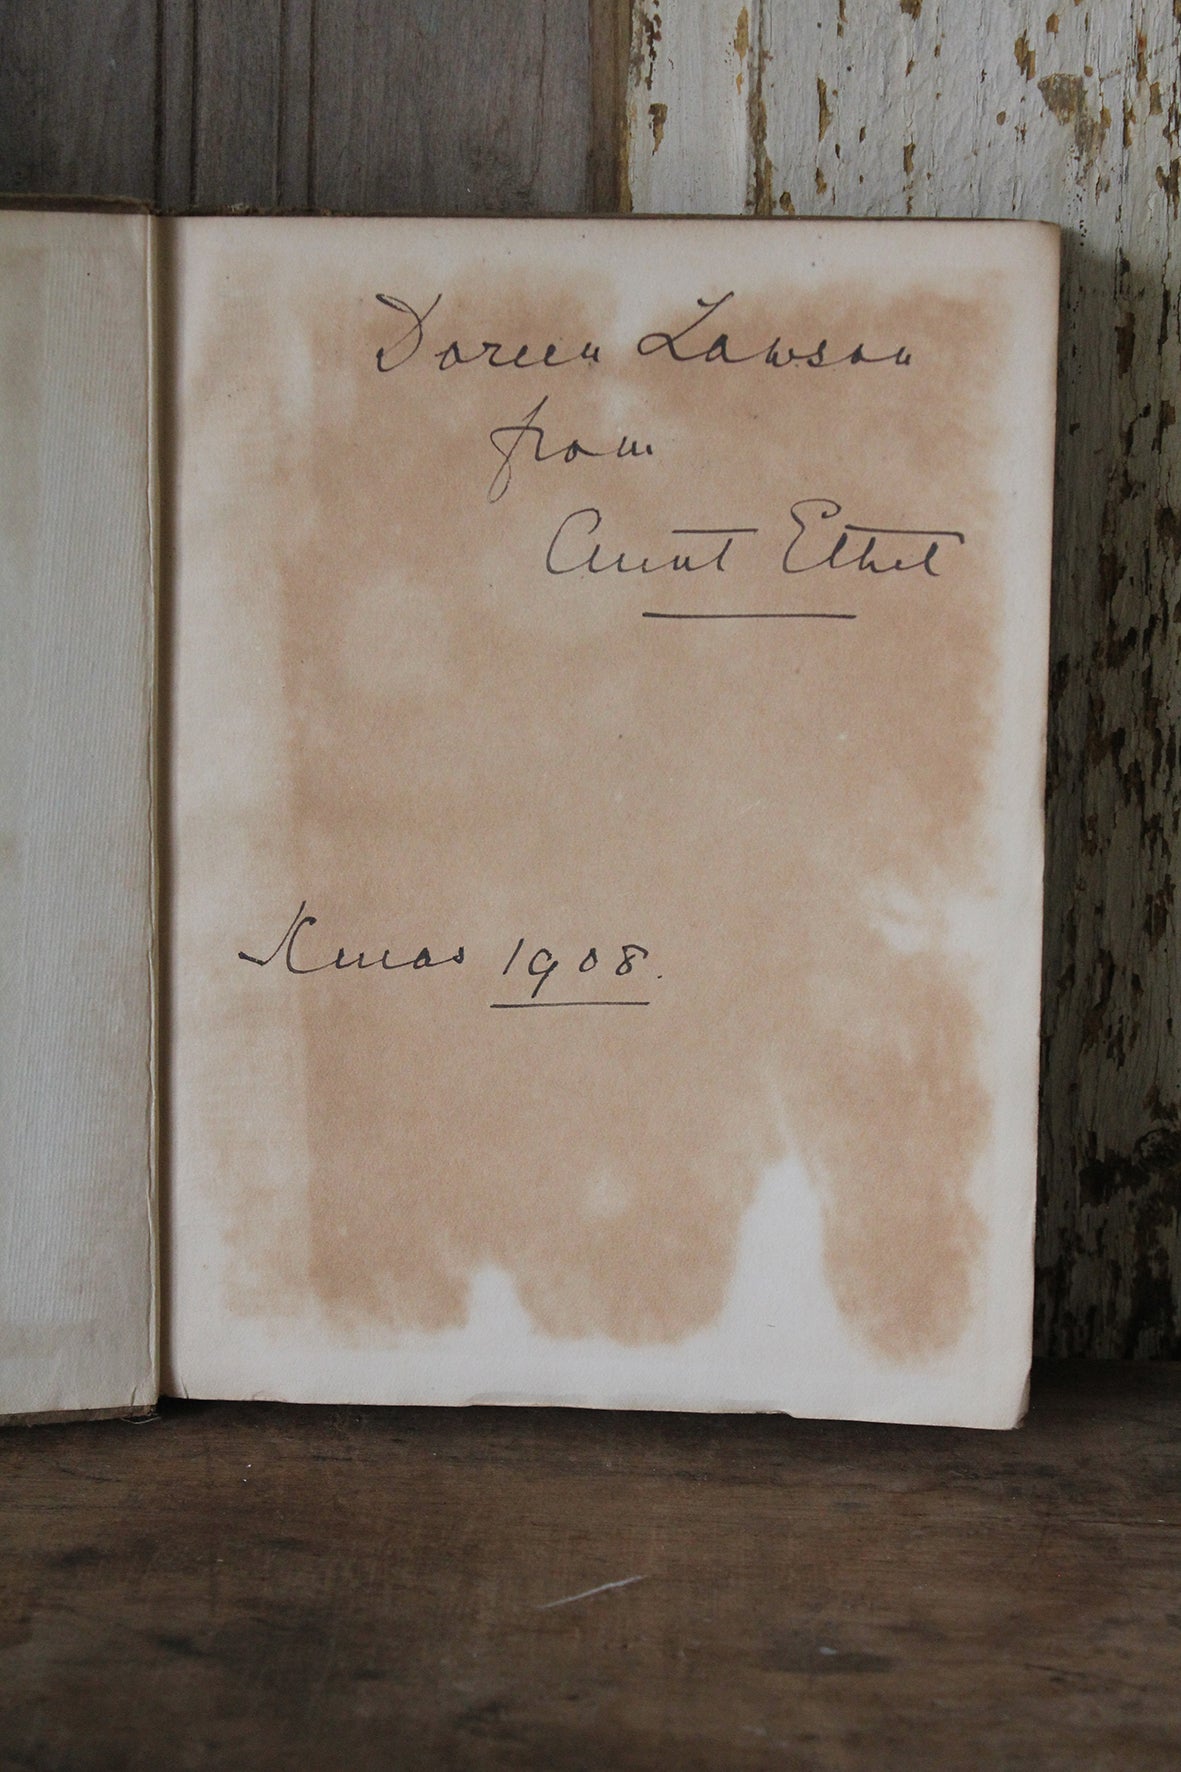 Doreen Lawson
from
Aunt Ethel
Xmas 1908.